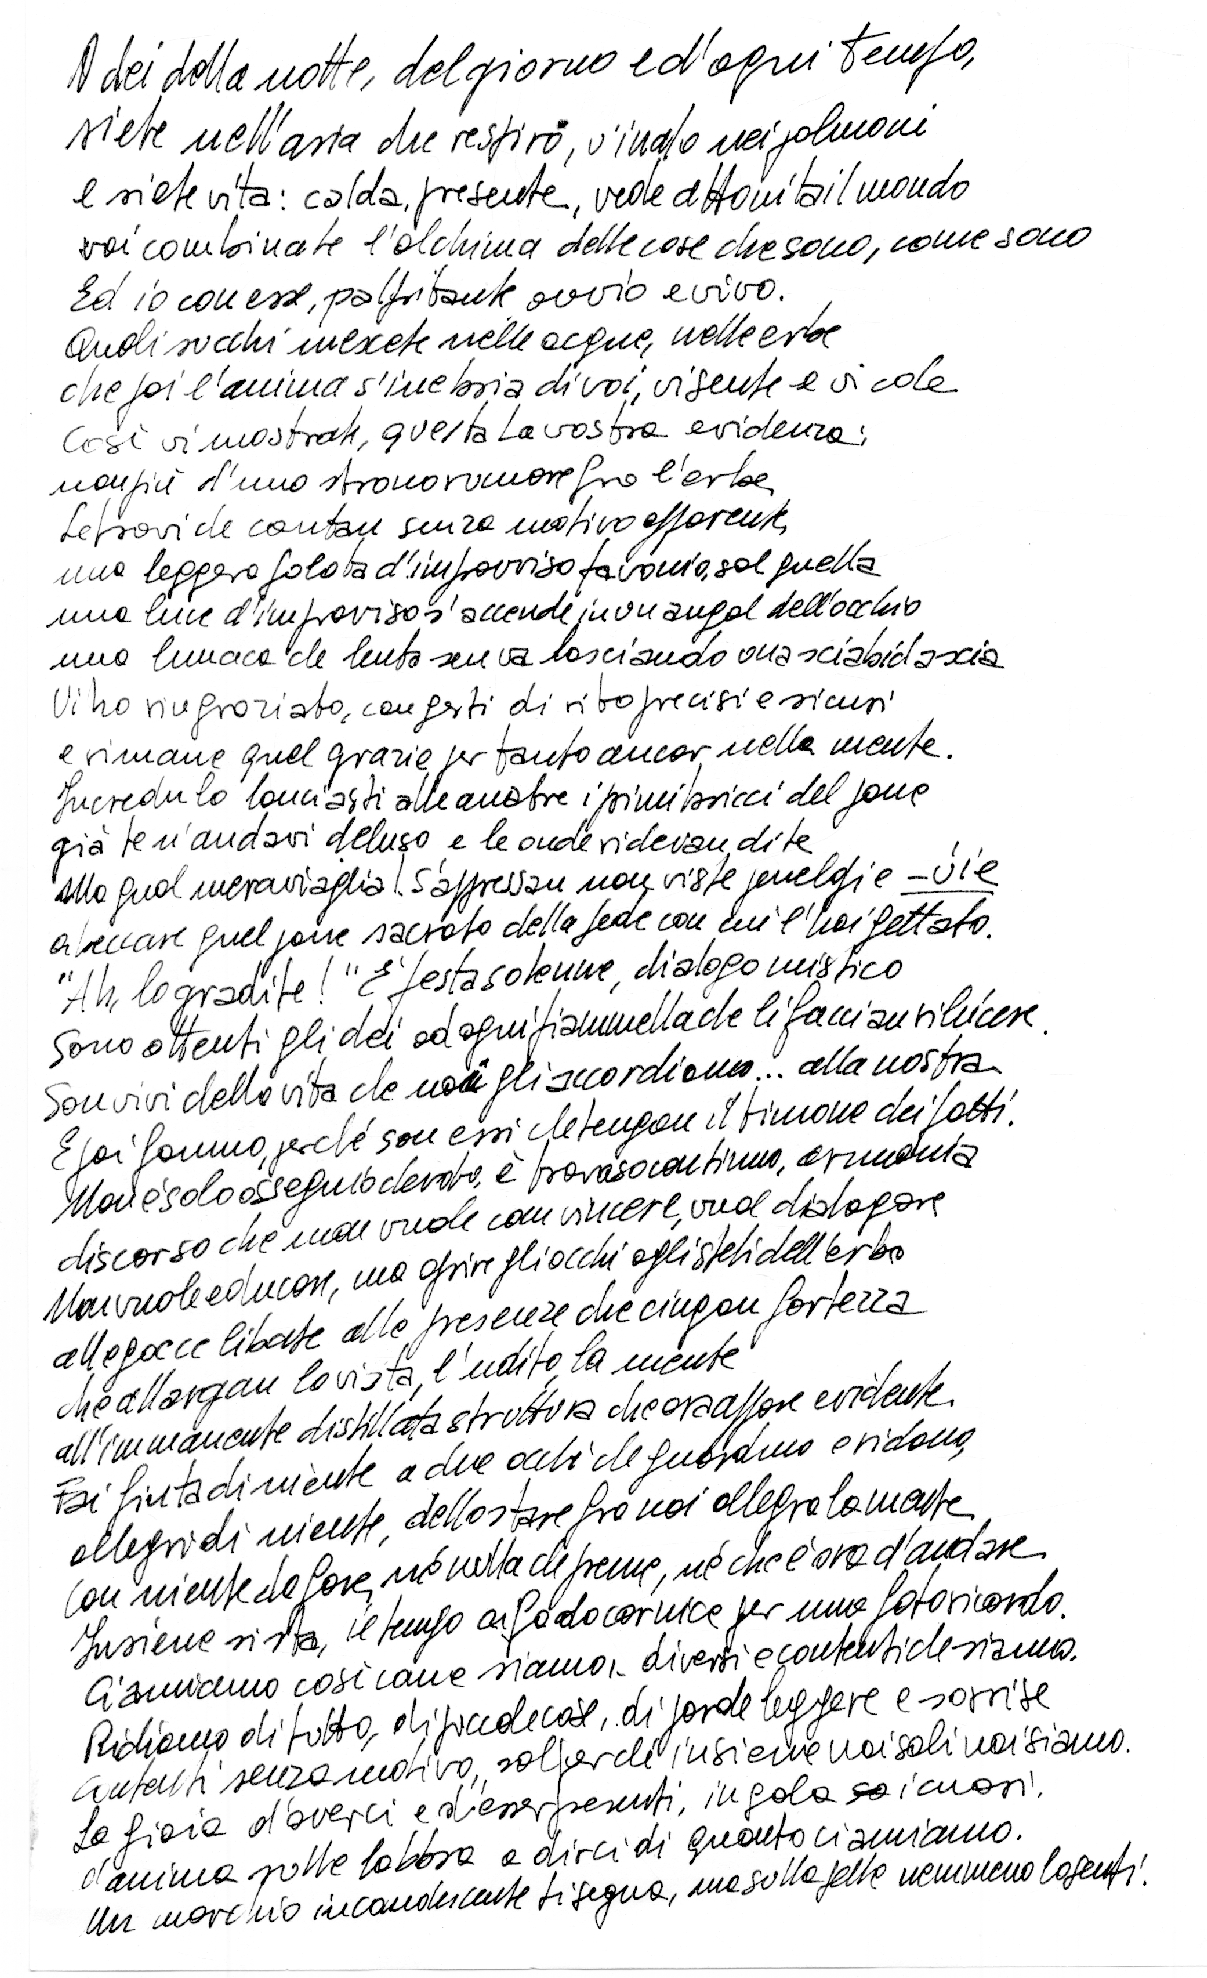 A dei della notte, del giorno e d'ogni tempo,
siete nell'aria che respiro, v'inalo nei polmoni
e siete vita: calda, presente, vede attonita il mondo
voi combinate l'alchima delle cose che sono, come sono
Ed io con esse, palpitante ovvio e vivo.
Quali succhi mescete nelle acque, nelle erbe
che poi l'anima s'inebria di voi, vi sente e vi cole
Così vi mostrate, questa la vostra evidenza:
non più d'uno strano rumore fra l'erbe,
Le travi che cantan senza motivo apparente,
una leggera folata d'improvviso favonio, sol quella
una luce d'improviso s'accende in un angol dell'occhio
una lumaca che lenta sen va lasciando una scia bidascia
Vi ho ringraziato, con gesti di rito precisi e sicuri
e rimane quel grazie per tanto ancor nella mente.
Incredulo lanciasti alle anatre i primi bricci del pane
già te n'andavi deluso e le onde ridevan di te
Ma qual meraviglia! S'appressan non viste penelopi e – vie
a beccare quel pane sacrato della fede con cui l'hai gettato.
"Ah, lo gradite!" E' festa solenne, dialogo mistico
Sono attenti gli dei ad ogni fiammella che li faccian rilucere.
Son vivi della vita che noi gli accordiamo... alla nostra
E poi fanno, perché son essi che tengon il timone dei fatti.
Non è solo ossequio devoto, è travaso continuo, armonia
discorso che non vuole convincere, vuol dialogare
Non vuole educare, ma aprire gli occhi agli steli dell'erba
alle gocce libate alle presenze che cingon fortezza
che allargan la vista, l'udito, la mente
all'immanente distillata struttura che ora appare evidente.
Fai finta di niente a due occhi che guardano e ridono,
allegri di niente, dello stare fra noi allegra la mente
Con niente da fare, né nulla che preme, né che è ora d'andare
Insieme si sta, il tempo ci fa da cornice per una foto ricordo.
Ci amiamo così come siamo, diversi e contenti che siamo.
Ridiamo di tutto, di piccole cose, di parole leggere e sorrise
Contenti senza motivo, sol perché insieme noi soli noi siamo.
La gioia d'averci e d'esser presenti, in gola i cuori,
d'anima sulle labbra a dirci di quanto ci amiamo.
Un marchio incandescente ti segna, ma sulla pelle nemmeno lo senti.